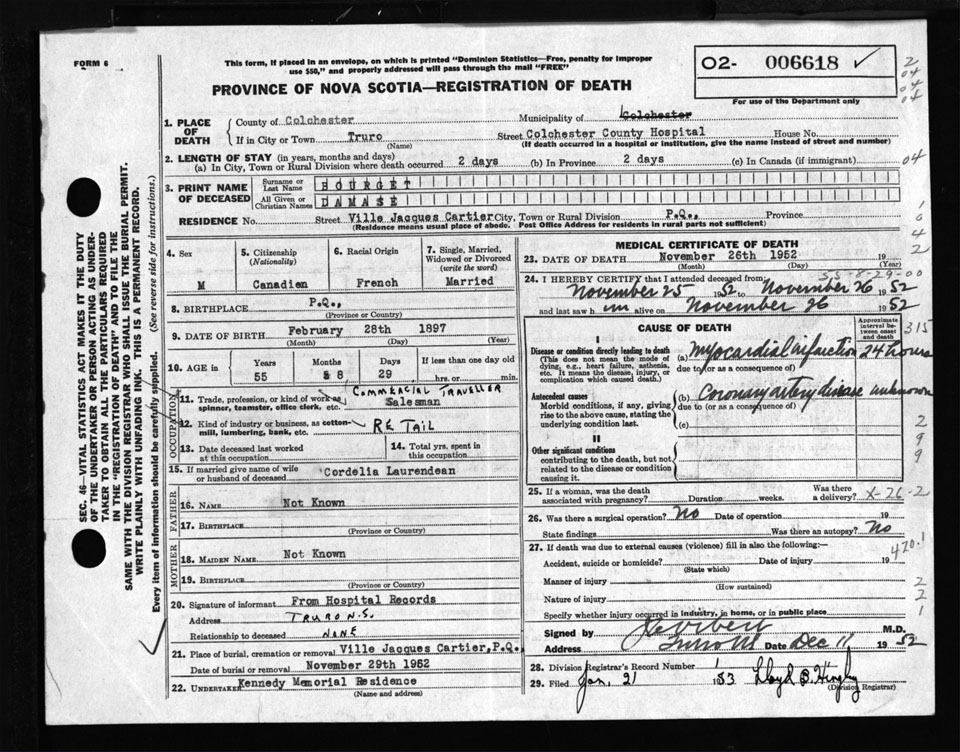 FORM 6
This form, if placed in an envelope, on which is printed "Dominion Statistics—Free, penalty for improper
use $50," and properly addressed will pass through the mail "FREE"
O2- 006618 ✓
For use of the Department only
PROVINCE OF NOVA SCOTIA—REGISTRATION OF DEATH
1. PLACE OF DEATH
County of Colchester Municipality of Colchester
If in City or Town Truro (Name) Street Colchester County Hospital House No.
(If death occurred in a hospital or institution, give the name instead of street and number)
2. LENGTH OF STAY (in years, months and days)
(a) In City, Town or Rural Division where death occurred 2 days (b) In Province 2 days (c) In Canada (if immigrant)
3. PRINT NAME OF DECEASED
Surname or Last Name BOURGET
All Given or Christian Names DAMASE
RESIDENCE No. Street Ville Jacques Cartier City, Town or Rural Division P.Q., Province
(Residence means usual place of abode. Post Office Address for residents in rural parts not sufficient)
4. Sex M
5. Citizenship (Nationality) Canadien
6. Racial Origin French
7. Single, Married, Widowed or Divorced (write the word) Married
8. BIRTHPLACE P.Q., (Province or Country)
9. DATE OF BIRTH February 28th 1897
(Month) (Day) (Year)
10. AGE in Years 55 Months 8 Days 29 If less than one day old hrs. or min.
OCCUPATION
11. Trade, profession, or kind of work as spinner, teamster, office clerk, etc. COMMERCIAL TRAVELLER Salesman
12. Kind of industry or business, as cotton-mill, lumbering, bank, etc. RETAIL
13. Date deceased last worked at this occupation
14. Total yrs. spent in this occupation
15. If married give name of wife or husband of deceased Cordelia Laurendean
FATHER
16. NAME Not Known
17. BIRTHPLACE (Province or Country)
MOTHER
18. MAIDEN NAME Not Known
19. BIRTHPLACE (Province or Country)
20. Signature of informant From Hospital Records
Address TRURO N.S.
Relationship to deceased NONE
21. Place of burial, cremation or removal Ville Jacques Cartier, P.Q.
Date of burial or removal November 29th 1952
22. UNDERTAKER Kennedy Memorial Residence
(Name and address)
MEDICAL CERTIFICATE OF DEATH
23. DATE OF DEATH November 26th 1952 19
(Month) (Day) (Year)
55-8-29-00
24. I HEREBY CERTIFY that I attended deceased from:
November 25 1952 to November 26 1952
and last saw h im alive on November 26 1952
CAUSE OF DEATH
Approximate interval between onset and death
I
Disease or condition directly leading to death
(This does not mean the mode of dying, e.g., heart failure, asthenia, etc. It means the disease, injury, or complication which caused death.)
(a) Myocardial infarction 24 hours
due to (or as a consequence of)
Antecedent causes
Morbid conditions, if any, giving rise to the above cause, stating the underlying condition last.
(b) Coronary artery disease unknown
due to (or as a consequence of)
(c)
II
Other significant conditions
contributing to the death, but not related to the disease or condition causing it.
25. If a woman, was the death associated with pregnancy? Duration weeks. Was there a delivery? X-26-2
26. Was there a surgical operation? No Date of operation 19
State findings Was there an autopsy? No
27. If death was due to external causes (violence) fill in also the following:—
Accident, suicide or homicide? (State which) Date of injury 19
420.1
Manner of injury (How sustained)
Nature of injury
Specify whether injury occurred in industry, in home, or in public place
Signed by M.D.
Address Truro NS Date Dec 11 1952
28. Division Registrar's Record Number 1
29. Filed Jan. 21 1953 Lloyd B.
(Division Registrar)
SEC. 46—VITAL STATISTICS ACT MAKES IT THE DUTY
OF THE UNDERTAKER OR PERSON ACTING AS UNDER-
TAKER TO OBTAIN ALL THE PARTICULARS REQUIRED
IN THE "REGISTRATION OF DEATH" AND TO FILE THE
SAME WITH THE DIVISION REGISTRAR WHO SHALL ISSUE THE BURIAL PERMIT.
WRITE PLAINLY WITH UNFADING INK. THIS IS A PERMANENT RECORD.
Every item of information should be carefully supplied. (See reverse side for instructions.)
2
04
04
04
04
1
0
4
2
315
2
9
9
2
2
1